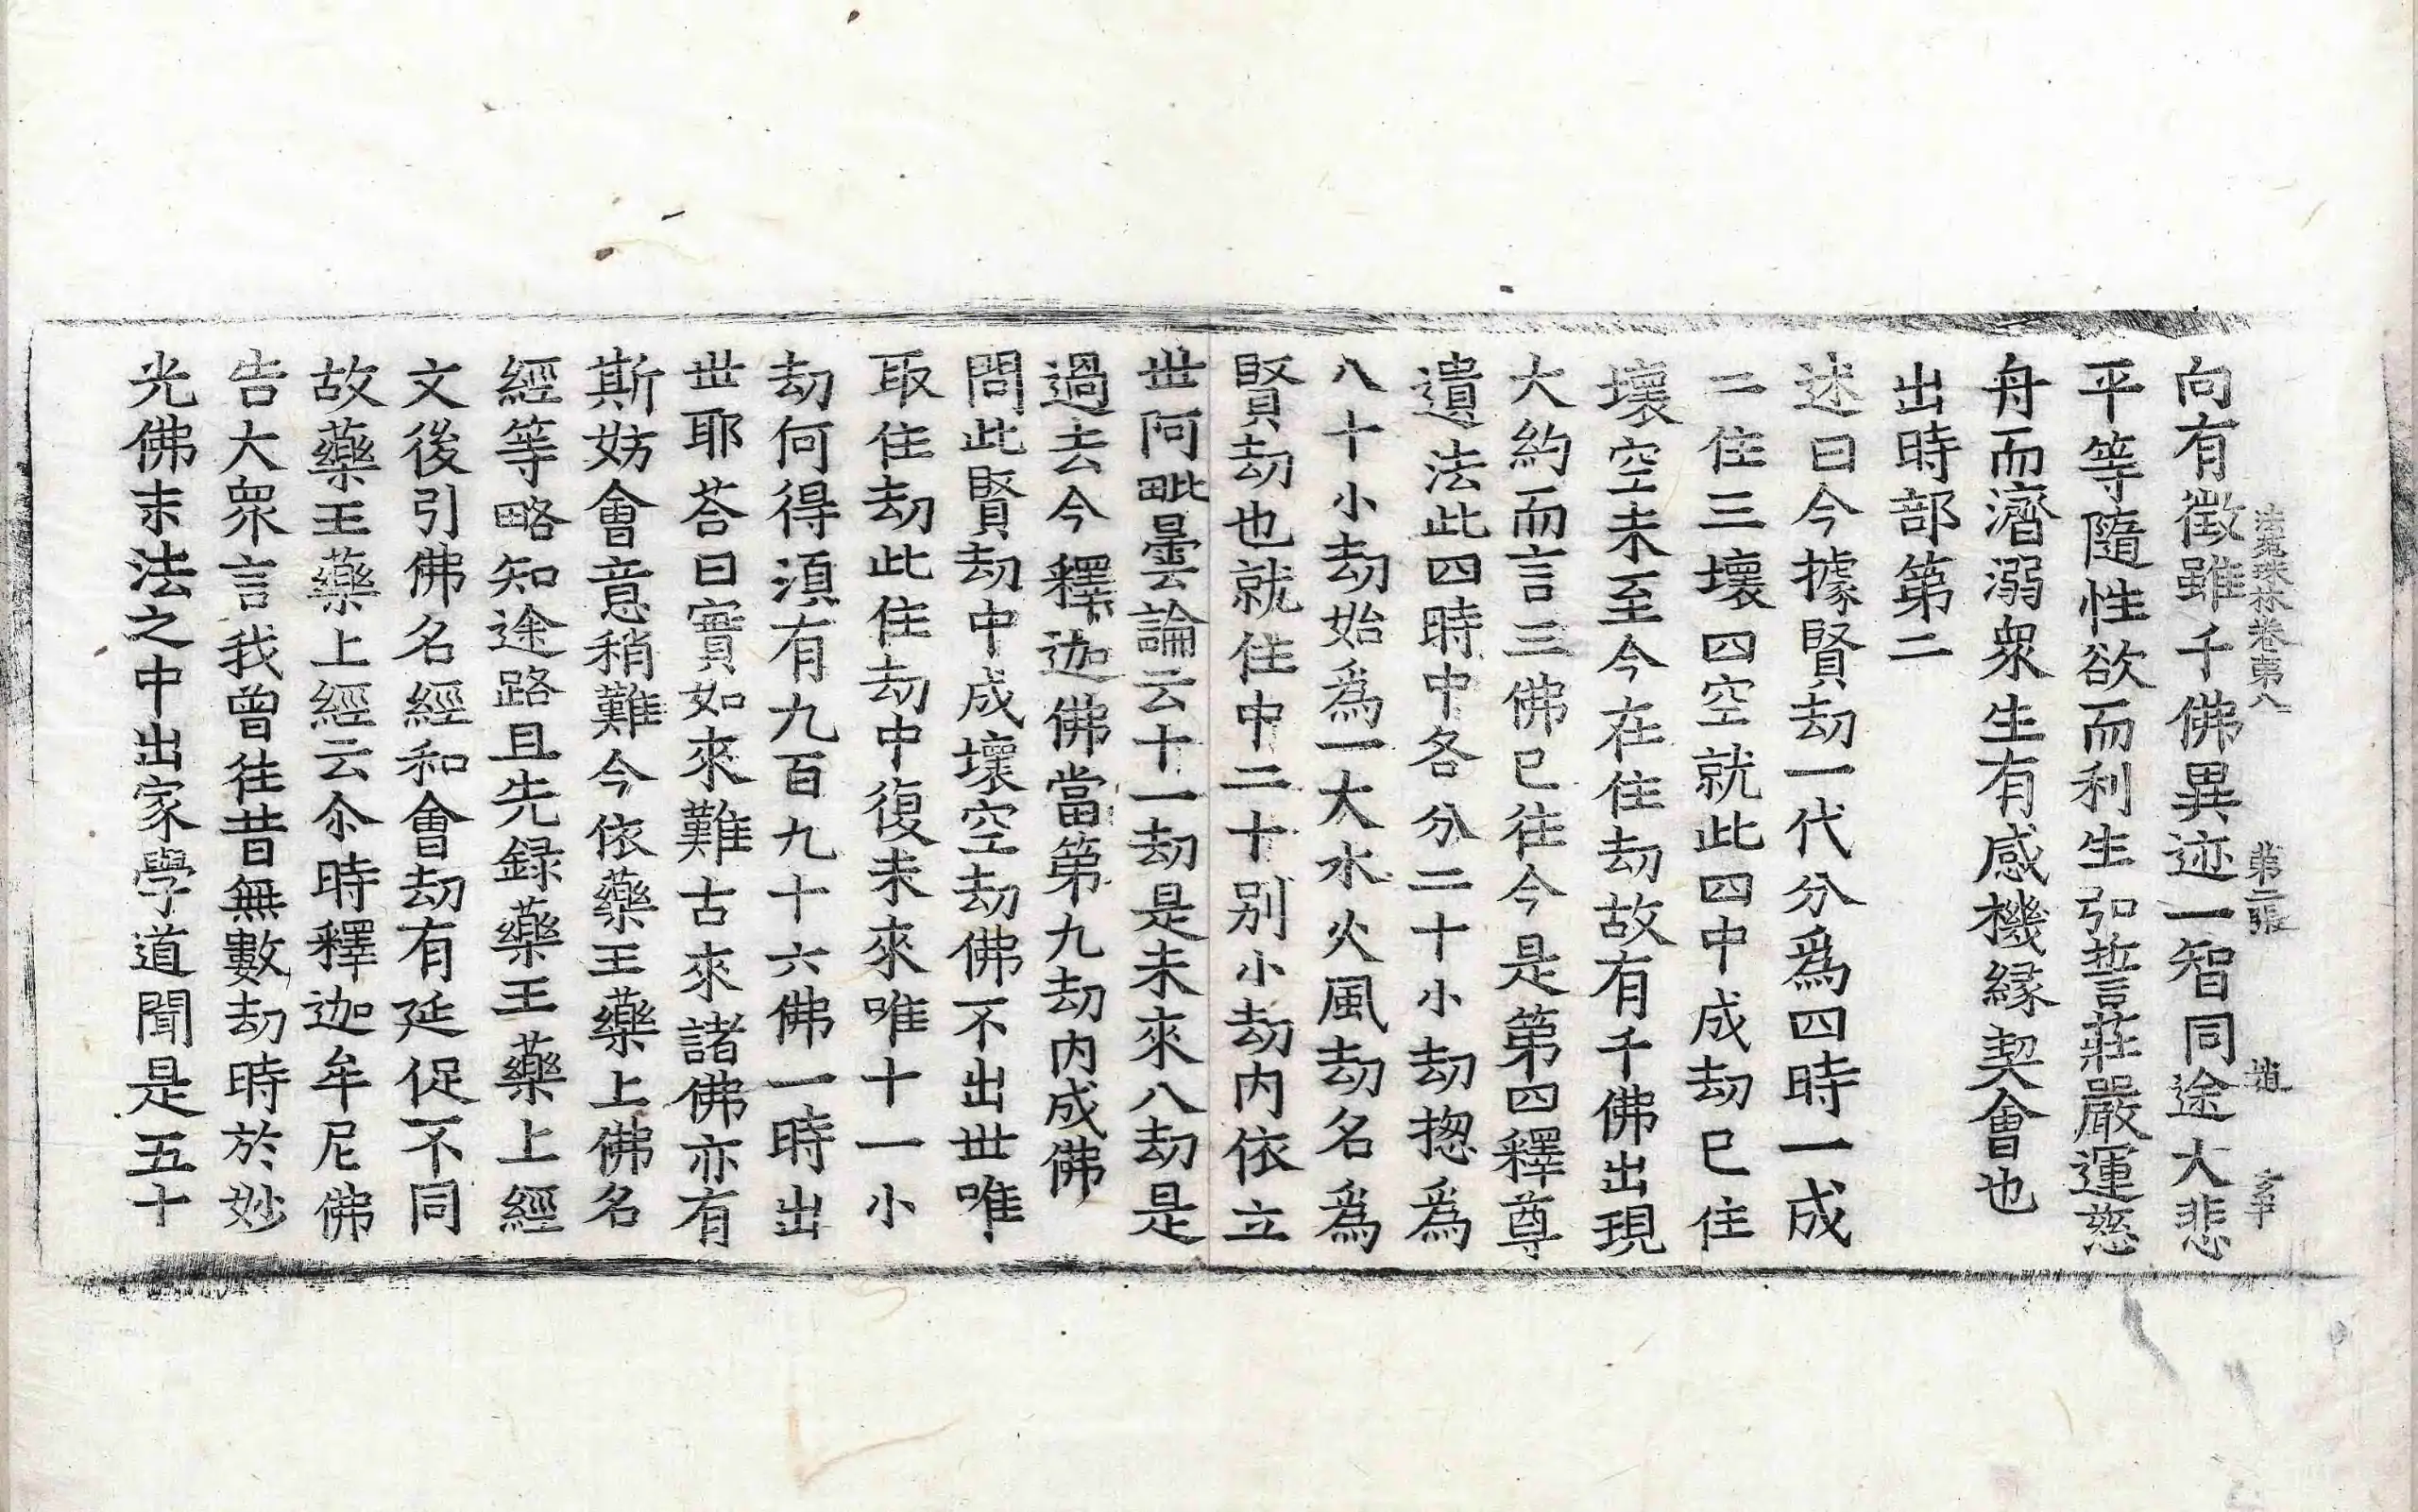 法苑珠林卷苐八 苐二張
向有徵雖千佛異迹一智同途大悲
平等隨性欲而利生弘誓莊嚴運慈
舟而濟溺衆生有感機緣契會也
出時部第二
述曰今據賢劫一代分爲四時一成
二住三壞四空就此四中成劫已住
壞空未至今在住劫故有千佛出現
大約而言三佛已往今是第四釋尊
遺法此四時中各分二十小劫揔爲
八十小劫始爲一大水火風劫名爲
賢劫也就住中二十别小劫内依立
世阿毗曇論云十一劫是未來八劫是
過去今釋迦佛當第九劫内成佛
問此賢劫中成壞空劫佛不出世唯
取住劫此住劫中復未來唯十一小
劫何得湏有九百九十六佛一時出
世耶荅曰實如來難古來諸佛亦有
斯妨會意稍難今依藥王藥上佛名
經等略知途路且先録藥王藥上經
文後引佛名經和會劫有延促不同
故藥王藥上經云尒時釋迦牟尼佛
告大衆言我曾往昔無數劫時於妙
光佛末法之中出家學道聞是五十